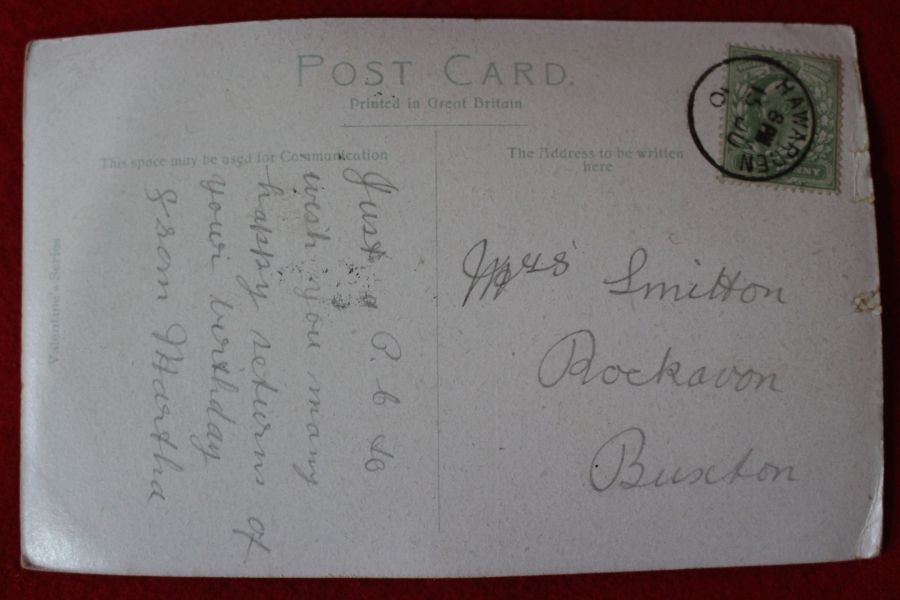 POST CARD.
Printed in Great Britain
This space may be used for Communication
The Address to be written
here
HAWARDEN
8 PM
15 JU
10
NNY
Valentine's Series
Just a P. C to
wish you many
happy returns of
your birthday
from Martha
Mrs Smitton
Rockavon
Buxton